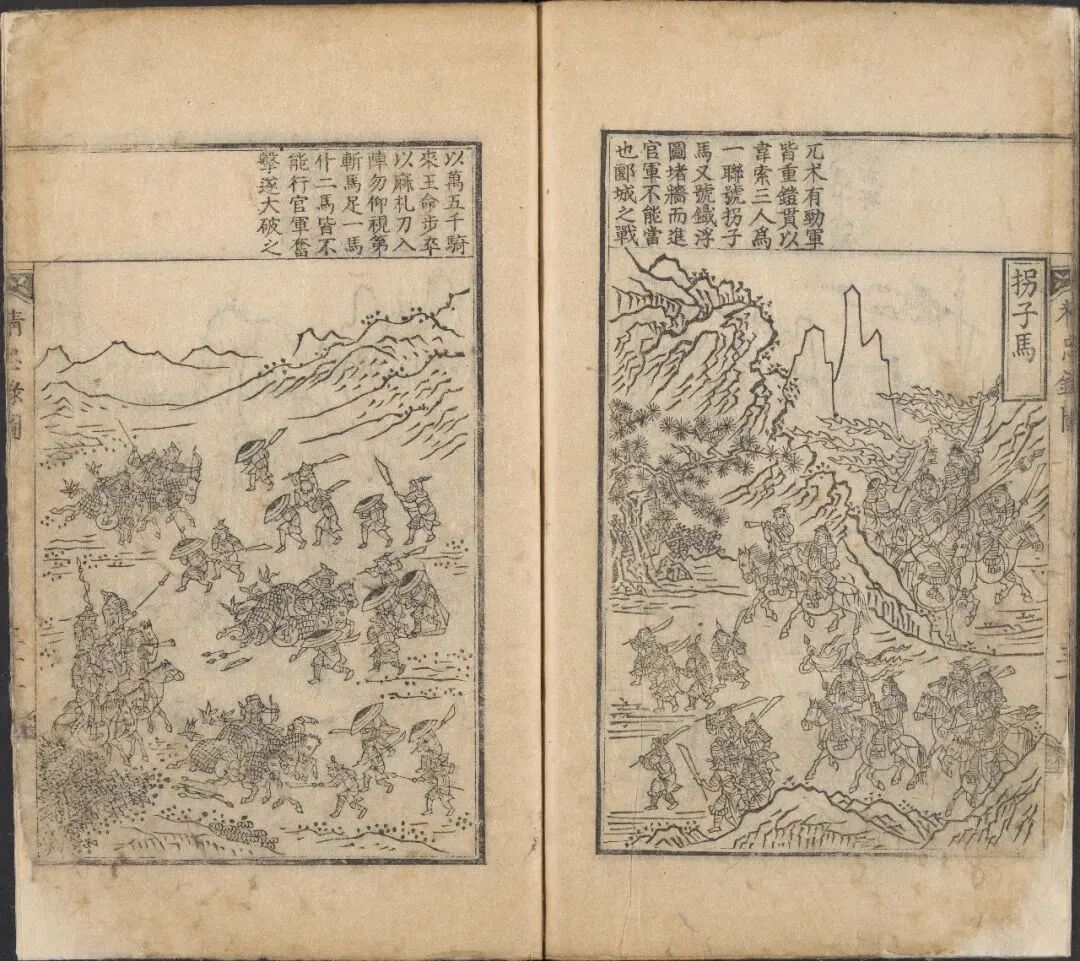 拐子馬
兀术有勁軍
皆重鎧貫以
韋索三人爲
一聯號拐子
馬又號鐵浮
圖堵牆而進
官軍不能當
也郾城之戰
以萬五千騎
來王命步卒
以麻札刀入
陣勿仰視第
斬馬足一馬
什二馬皆不
能行官軍奮
擊遂大破之
精忠錄圖